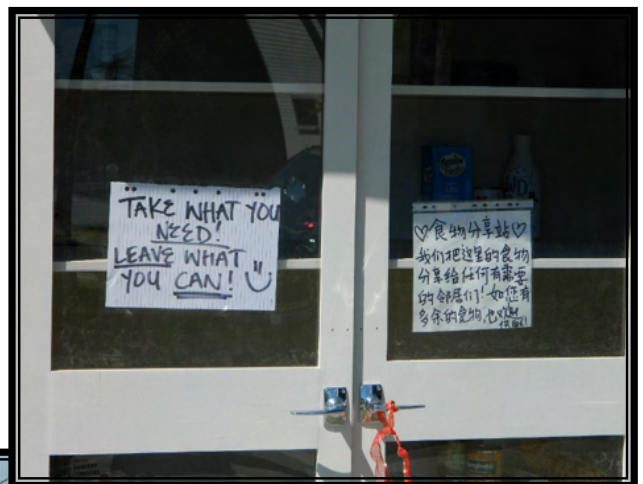 TAKE WHAT YOU
NEED!
LEAVE WHAT
YOU CAN!
♡食物分享站♡
我们把这里的食物
分享给任何有需要
的邻居们！如您有
多余的食物,也欢迎